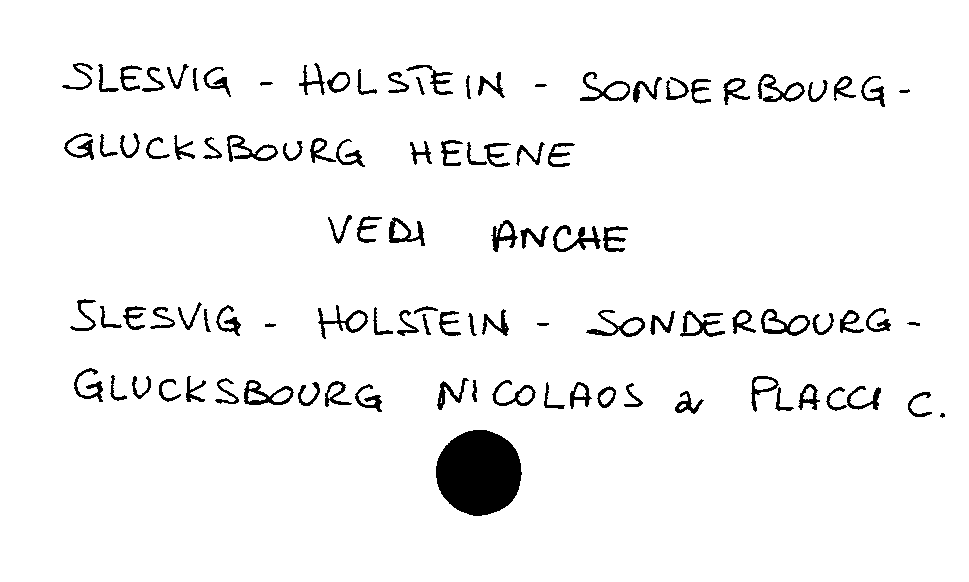 SLESVIG - HOLSTEIN - SONDERBOURG -
GLUCKSBOURG HELENE
VEDI ANCHE
SLESVIG - HOLSTEIN - SONDERBOURG -
GLUCKSBOURG NICOLAOS a PLACCI C.